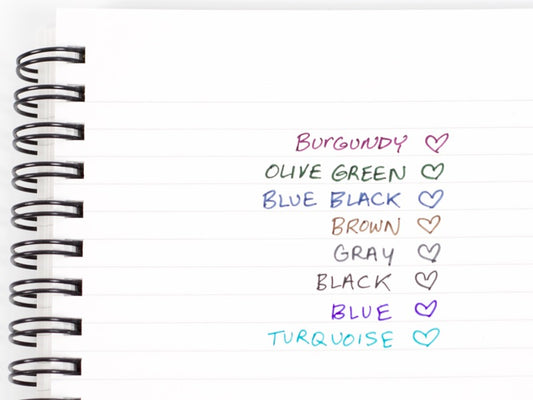 BURGUNDY ♡
OLIVE GREEN ♡
BLUE BLACK ♡
BROWN ♡
GRAY ♡
BLACK ♡
BLUE ♡
TURQUOISE ♡